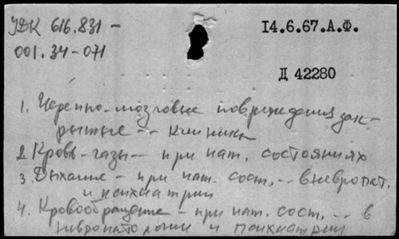 УДК 616.831-
001.34-071
14.6.67.А.Ф.
Д 42280
1. Черепно-мозговые повреждения зак-
рытые -- клиника
2. Кровь-газы -- при пат. состояниях
3. Дыхание - при пат. сост., -- в невропат.
и психиатрии
4. Кровообращение - при пат. сост., -- в
невропатологии и психиатрии